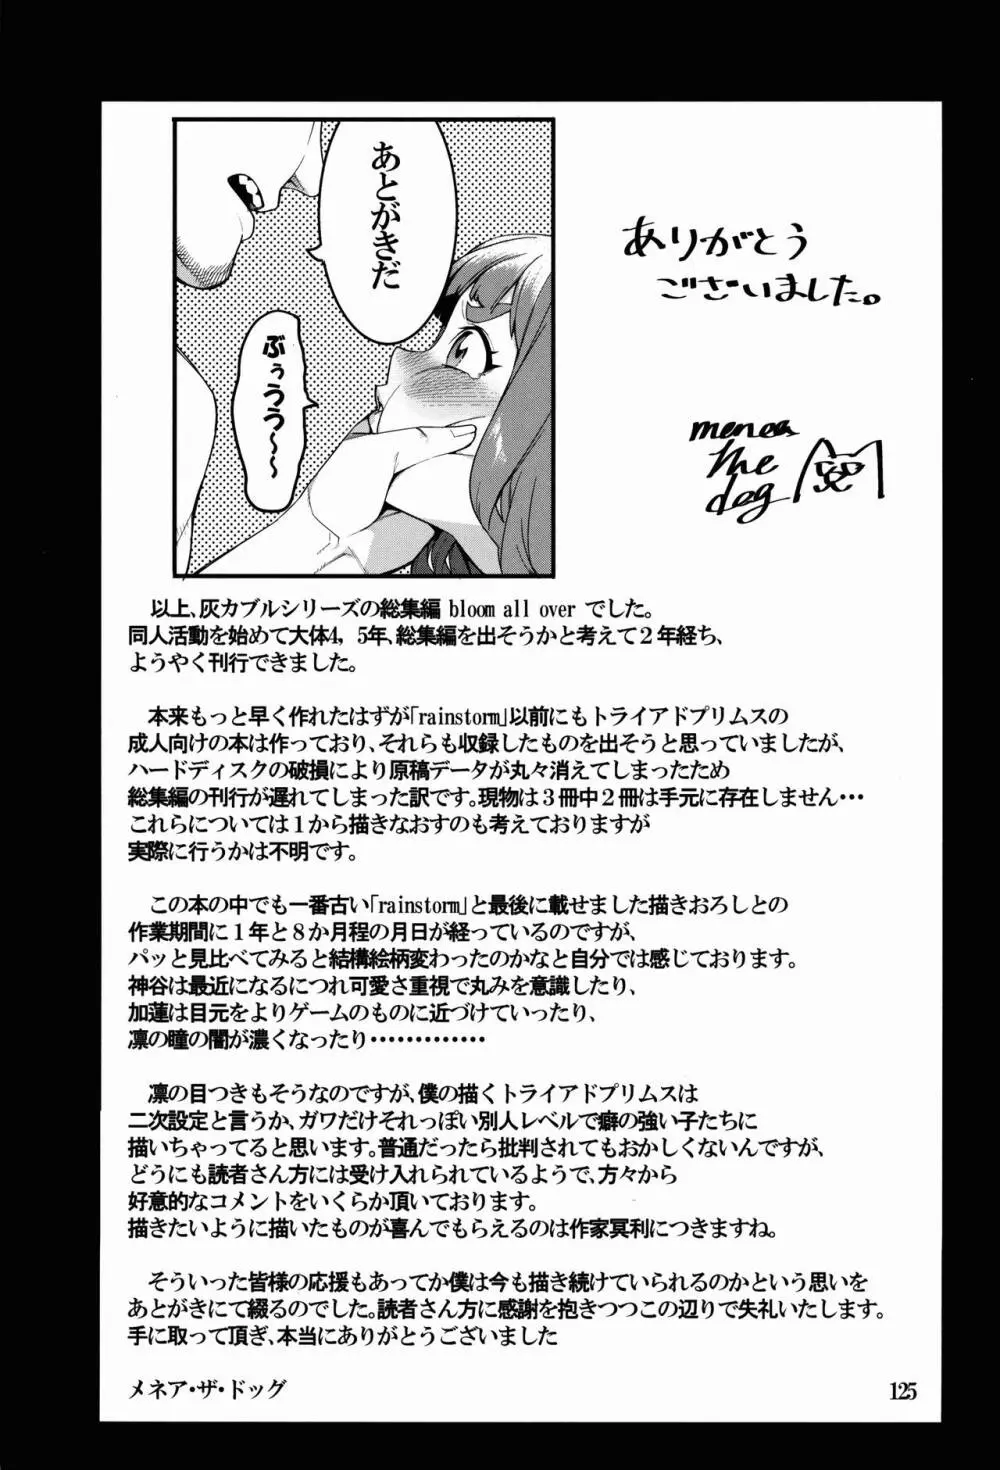 あとがきだ
ぶぅうう～～
ありがとう
ございました。
menea
the
dog
以上、灰カブルシリーズの総集編 bloom all over でした。
同人活動を始めて大体4，5年、総集編を出そうかと考えて２年経ち、
ようやく刊行できました。
本来もっと早く作れたはずが「rainstorm」以前にもトライアドプリムスの
成人向けの本は作っており、それらも収録したものを出そうと思っていましたが、
ハードディスクの破損により原稿データが丸々消えてしまったため
総集編の刊行が遅れてしまった訳です。現物は３冊中２冊は手元に存在しません・・・
これらについては１から描きなおすのも考えておりますが
実際に行うかは不明です。
この本の中でも一番古い「rainstorm」と最後に載せました描きおろしとの
作業期間に１年と８か月程の月日が経っているのですが、
パッと見比べてみると結構絵柄変わったのかなと自分では感じております。
神谷は最近になるにつれ可愛さ重視で丸みを意識したり、
加蓮は目元をよりゲームのものに近づけていったり、
凛の瞳の闇が濃くなったり・・・・・・・・・・・・・
凛の目つきもそうなのですが、僕の描くトライアドプリムスは
二次設定と言うか、ガワだけそれっぽい別人レベルで癖の強い子たちに
描いちゃってると思います。普通だったら批判されてもおかしくないんですが、
どうにも読者さん方には受け入れられているようで、方々から
好意的なコメントをいくらか頂いております。
描きたいように描いたものが喜んでもらえるのは作家冥利につきますね。
そういった皆様の応援もあってか僕は今も描き続けていられるのかという思いを
あとがきにて綴るのでした。読者さん方に感謝を抱きつつこの辺りで失礼いたします。
手に取って頂ぎ、本当にありがとうございました
メネア・ザ・ドッグ
125